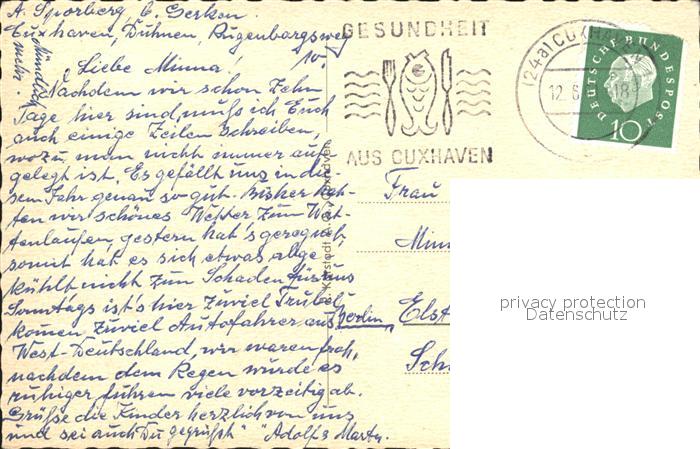 A. Sporberg b. Gerken
Cuxhaven, Duhnen, Rugenbargsweg
10.
Mündlich mehr.
Liebe Minna!
Nachdem wir schon Zehn
Tage hier sind, muß ich Euch
auch einige Zeilen schreiben,
wozu man nicht immer auf-
gelegt ist. Es gefällt uns in die-
sem Jahr genau so gut. Bisher hat-
ten wir schönes Wetter zum Wat-
tenlaufen, gestern hat's geregnet,
somit hat es sich etwas abge
kühlt nicht zum Schaden für uns
Sonntags ist's hier zuviel Trubel
kommen zuviel Autofahrer aus
West-Deutschland, wir waren froh,
nachdem dem Regen wurde es
ruhiger fuhren viele vorzeitig ab.
Grüße die Kinder herzlich von uns
und sei auch Du gegrüßt "Adolf & Martn.
GESUNDHEIT
AUS CUXHAVEN
(24a) CUXHAVEN
12.6. 18
DEUTSCHE BUNDESPOST
10
Karstadt Cuxhaven
Frau
Minn
Berlin Elst
Sch
privacy protection
Datenschutz